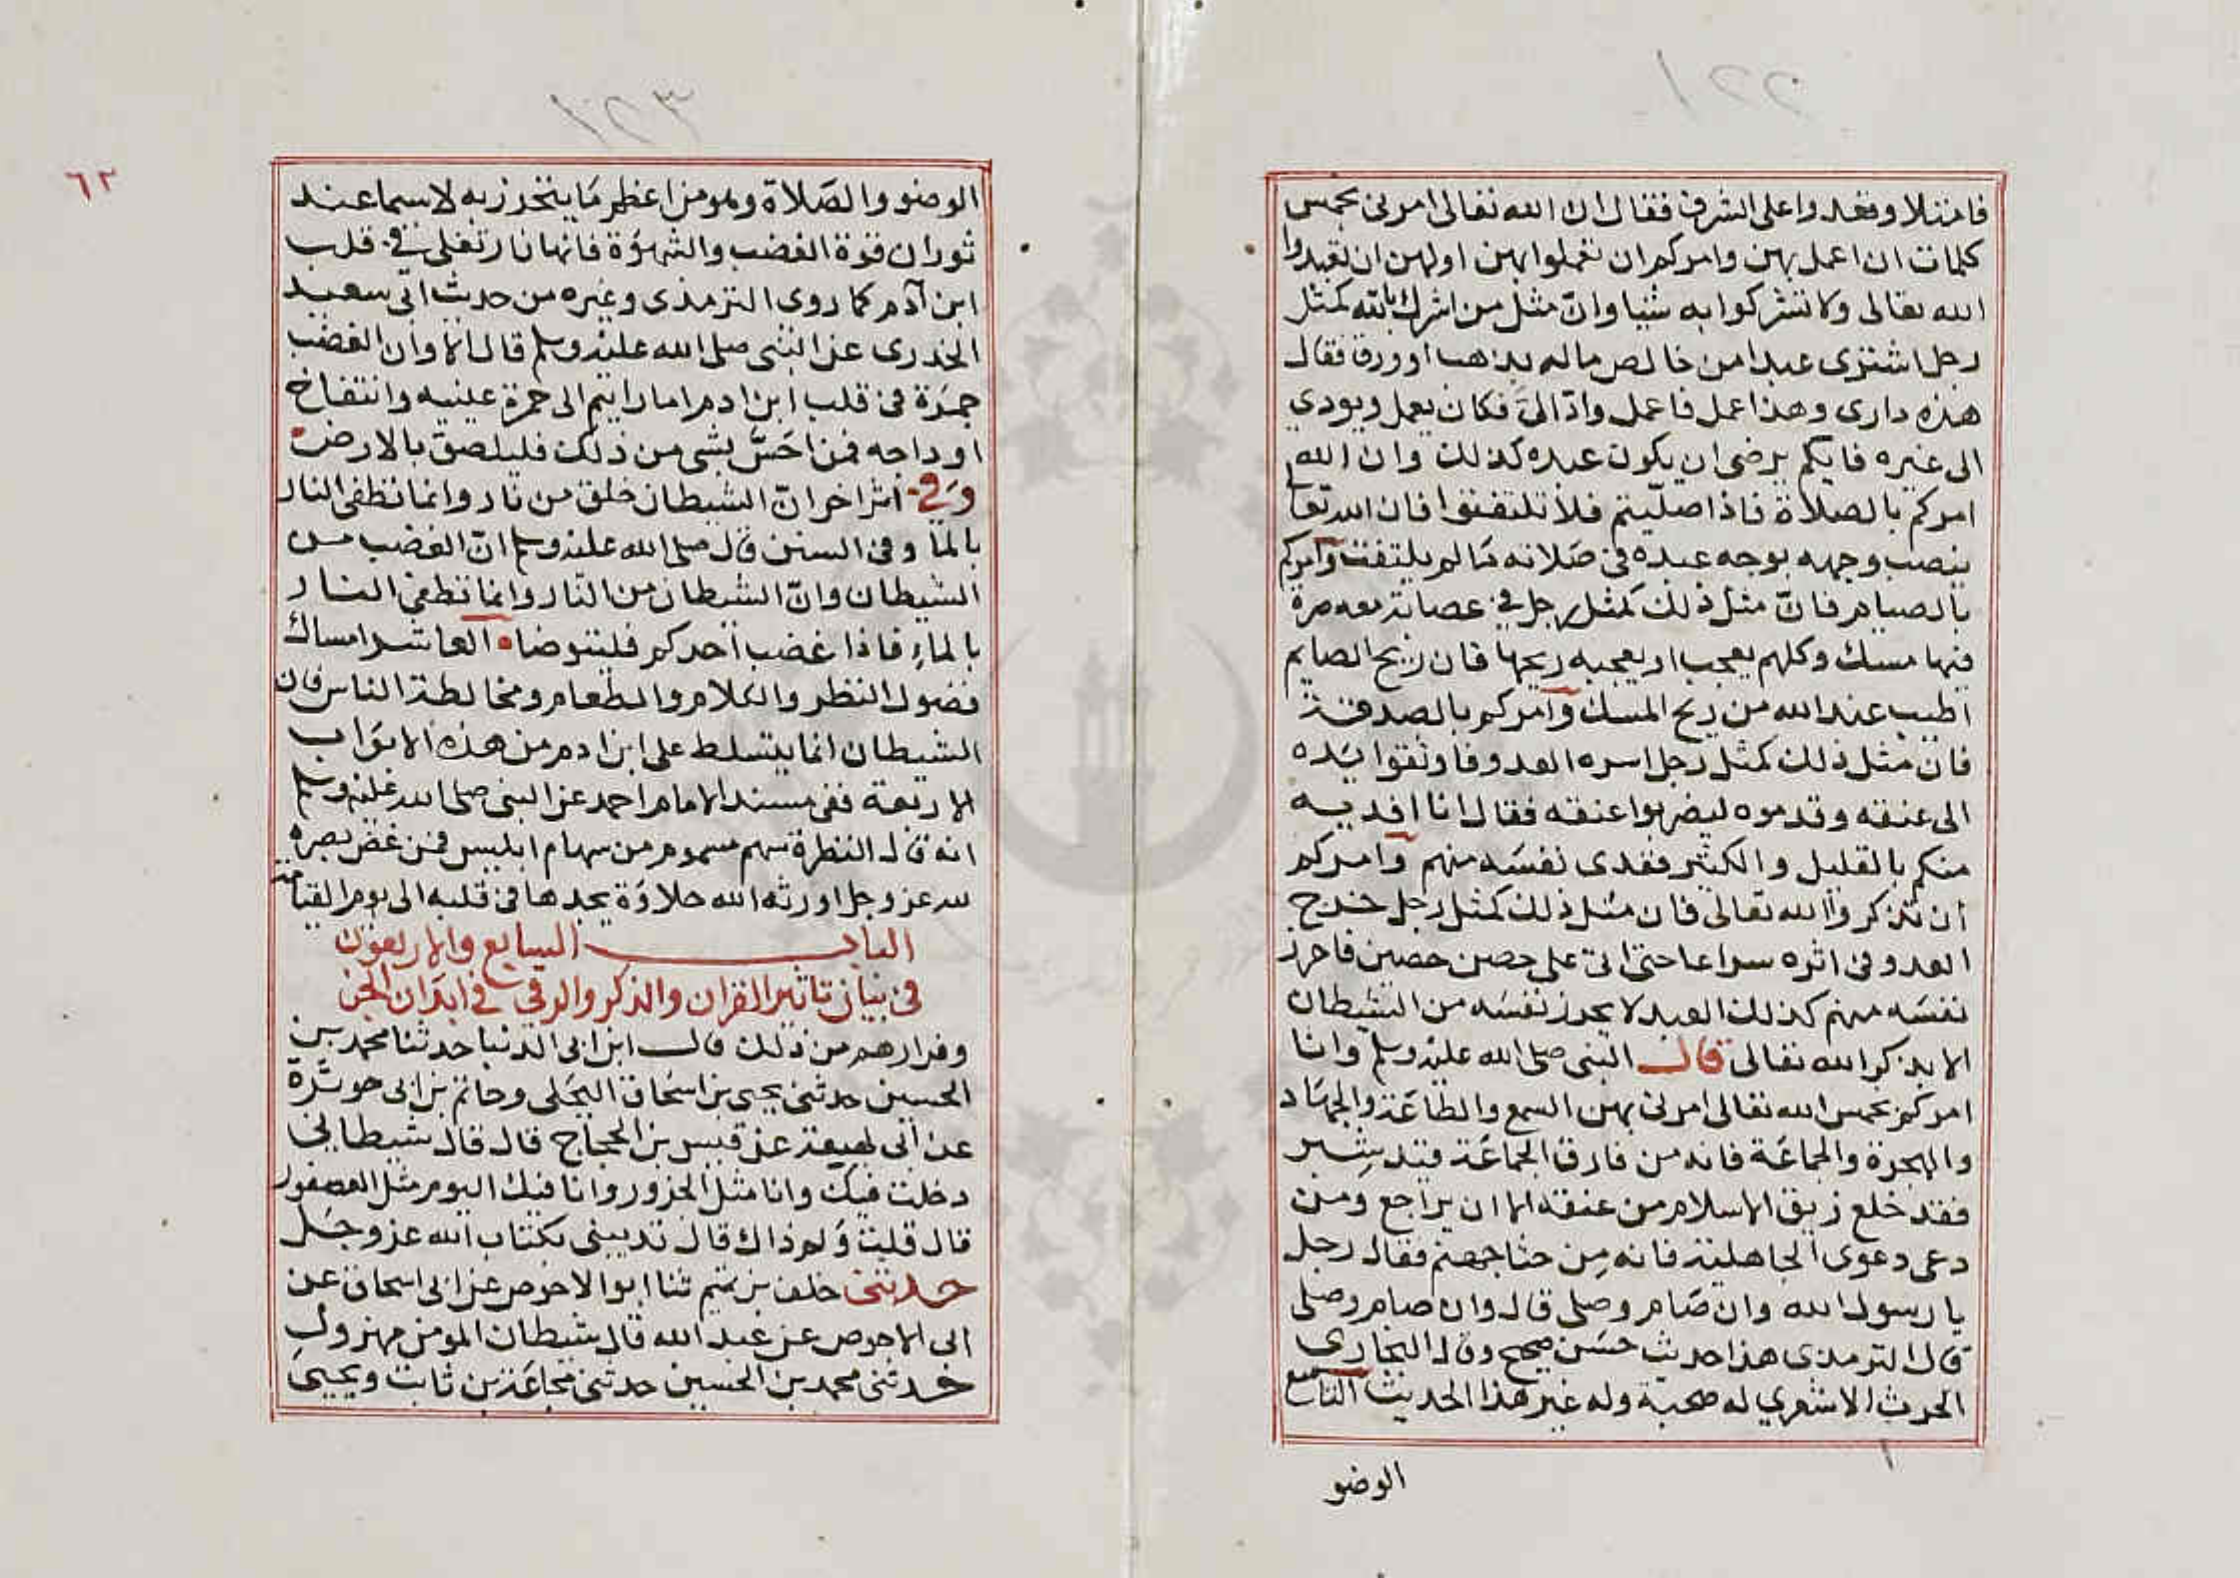 ١٢٢
فامتلا وقعدوا على الشرف فقال ان الله تعالى امرني بخمس
كلمات ان اعمل بهن وامركم ان تعملوا بهن اولهن ان تعبدوا
الله تعالى ولا تشركوا به شيا وانّ مثل من اشرك بالله كمثل
رجل اشترى عبدا من خالص ماله بذهب او ورق فقال
هذه دارى وهذا عمل فاعمل وادّ الىَ فكان يعمل ويودي
الى غيره فايكم يرضى ان يكون عبده كذلك وان الله
امركم بالصلاة فاذا صلّيتم فلا تلتفتوا فان الله تعا
ينصب وجهه بوجه عبده في صَلاته مَا لم يلتفت وآمركم
بالصيام فانّ مثل ذلك كمثل رجل في عصابة معه صرة
فيها مسك وكلهم يعجب او يعجبه ريحها فان ريح الصايم
اطيب عند الله من ريح المسك وآمركم بالصدقة
فان مثل ذلك كمثل رجل اسره العدو فاوثقوا يَده
الى عنقه وقدموه ليضربوا عنقه فقال انا افديه
منكم بالقليل والكثير ففدى نفسَه منهم وامركم
ان تذكروا الله تعالى فان مثل ذلك كمثل رجل خرج
العدو في اثره سراعا حتى اتى على حصن حصين فاحرز
نفسَه منهم كذلك العبد لا يحرز نفسَه من الشيطان
الا بذكر الله تعالى قال النبي صلى الله عليه وسلم وانا
امركم بخمس الله تعالى امرني بهن السمع والطاعَة والجهَاد
والهجرة والجماعَة فانه من فارق الجماعَة قيد شِبر
فقد خلع ربق الاسلام من عنقه الا ان يراجع ومن
دعى دعوى الجاهلية فانه مِن حثا جهنم فقال رجل
يا رسول الله وان صَام وصلى قال وان صام وصلى
قال الترمدى هذا حديث حسَن صحيح وقال البخاري
الحرث الاشعري له صحبة وله غير هذا الحديث التاسع
الوضو
١٢٣
٦٢
الوضو والصَلاة وهو من اعظم مَا يتحرز به لا سيما عند
ثوران قوة الغضب والشهوَة فانها نار تغلى في قلب
ابن آدم كما روى الترمذى وغيره من حديث ابي سعيد
الخدرى عن النبى صلى الله عليه وسلم قال الا وان الغضب
جمَرة في قلب ابن ادم اما رايتم الى حمرة عينيه وانتفاخ
اوداجه فمن احَسَّ بشى من ذلك فليلصق بالارض
وَفي اثر اخر انّ الشيطان خلق من نار وانما تطفى النار
بالما وفى السنن قال صلى الله عليه وسلم انّ الغضب من
الشيطان وانّ الشيطان من النّار وانما تطفى النار
بالماءِ فاذا غضب احدكم فليتوضا العاشر امساك
فضول النظر والكلام والطعام ومخالطة الناس فان
الشيطان انما يتسلط على ابن ادم من هذه الابوَاب
الاربعة ففى مسند الامام احمد عن النبى صلى الله عليه وسلم
انه قال النظرة سهم مسموم من سهام ابليس فمن غض بصره
لله عز وجل اورثه الله حلاوَة يجدها في قلبه الى يوم القيامة
الباب السابع والاربعون
في بيان تاثير القران والذكر والرقي في ابدَان الجن
وفرارهم من ذلك قال ابن ابى الدنيا حدثنا محمد بن
الحسين حدثني يحيى بن اسحاق البجَلى وحاتم بن ابى حوثرة
عن ابى لهيعة عن قيس بن الحجاج قال قال شيطاني
دخلت فيك وانا مثل الجزور وانا فيك اليوم مثل العصفور
قال قلت وَلم ذاك قال تديبنى بكتاب الله عز وجَل
حدثنى خلف بن تميم ثنا ابو الاحوص عن ابى اسحاق عن
ابى الاحوص عن عبد الله قال شيطان المومن مهزول
حدثنى محمد بن الحسين حدثنى مجاعَة بن ثابت ويحيىَ